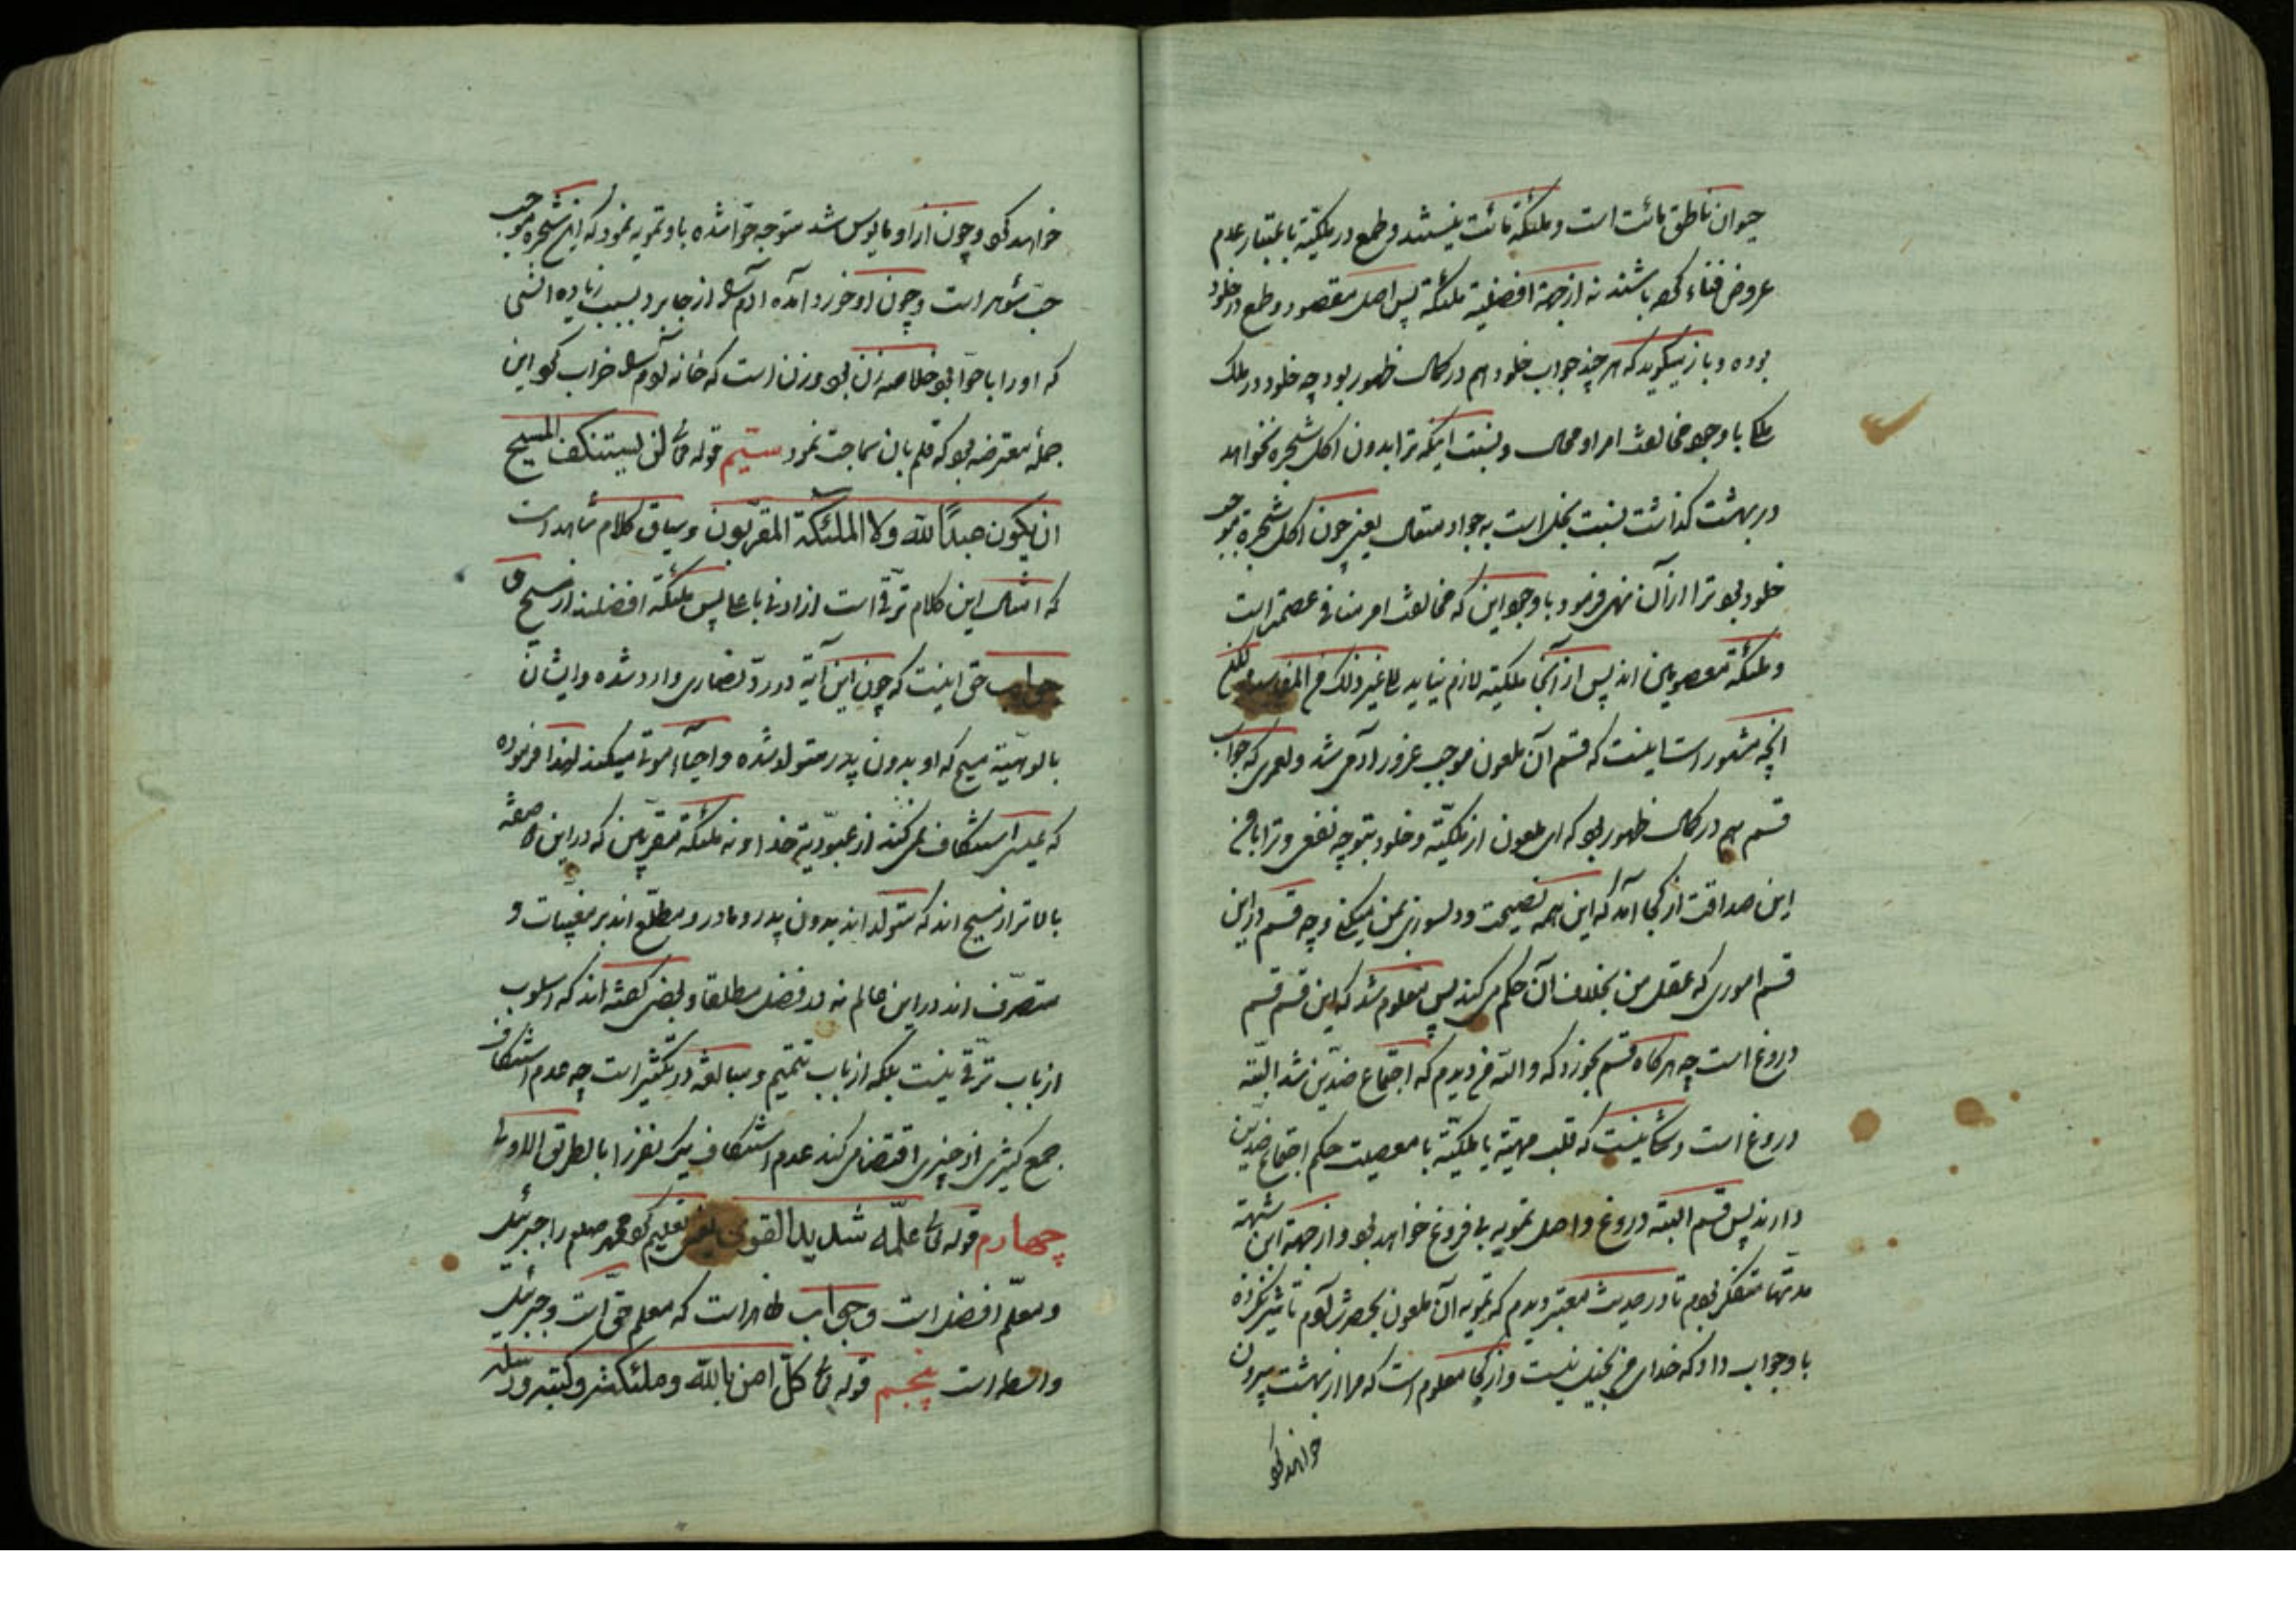 حیوان ناطق مائت است و ملئکة مائت نیستند و طمع در ملکیّة باعتبار عدم
عروض فناء که باشند نه از جهة افضلیة ملئکة پس اصل مقصود و طمع در خلود
بوده و باز میگوید که هر چند جواب خلود هم در کمال ظهور بود چه خلود در ملک
با وجود مخالفت امر او محال و نسبت اینکه ترا بدون اکل شجره نخواهد
در بهشت گذاشت نسبت بخل است به جواد متعال یعنی چون اکل شجره موجب
خلود بود ترا از آن نهی فرمود با وجود این که مخالفت امر منافی عصمت است
و ملئکة معصومین اند پس از آنجا ملکیّة لازم نیاید الی غیر ذلک من المفاسد
آنچه مشهور است اینست که قسم آن ملعون موجب غرور آدم شد و لعمری که جواب
قسم هم در کمال ظهور بود که ای ملعون از ملکیّة و خلود بتو چه نفعی و ترا با من
این صداقت از کجا آمد که این همه نصیحت و دلسوزی بمن میکنی و چه قسم در این
قسم اموری که عقل من بخلاف آن حکم می کند پس معلوم شد که این قسم قسم
دروغ است چه هر کاه قسم بخورد که والله من دیدم که اجتماع ضدّین شد البتّه
دروغ است و شکی نیست که قلب مهیّة یا ملکیّة با معصیت حکم اجتماع ضدّین
دارند پس قسم البتّه دروغ و اصل تمویه بی فروغ خواهد بود و از جهة این شبهة
مدتها متفکر بودم تا در حدیث معتبر دیدم که تمویه آن ملعون بحضرت آدم تاثیر نکرده
با و جواب داد که خدای من بخیل نیست و از کجا معلوم است که مرا از بهشت بیرون
خواهد کرد
خواهد کرد و چون از او مایوس شد متوجه حوّا شده باو تمویه نمود که این شجره موجب
حبّ شوهر است و چون او خورد آمده آدم را از جا برد بسبب زیاده انسی
که او را با حوّا بود خلاصه زن بود و زن است که خانه آدم را خراب کرد این
جملهٔ معترضه بود که قلم بان سماجت نمود سیّم قوله تعالی لن یستنکف المسیح
ان یکون عبدًا لله ولا الملئکة المقرّبون و سیاق کلام شاهد است
که امثال این کلام ترقی است از ادنی باعلی پس ملئکة افضلند از مسیح و
جواب حق اینست که چون این آیة در ردّ نصاری وارد شده و ایشان
بالوهیّة مسیح که او بدون پدر متولد شده و احیاء موتی میکند لهذا فرموده
که عیسی استنکاف نمی کند از عبودیّة خدا و نه ملئکة مقرّبین که در این صفة
بالاتر از مسیح اند که متولد اند بدون پدر و مادر و مطّلع اند بر مغیبات و
متصرّف اند در این عالم نه در فضل مطلقا و بعضی گفته اند که اسلوب
از باب ترقی نیست بلکه از باب تتمیم و مبالغه در تکثیر است چه عدم استنکاف
جمع کثیری از چیزی اقتضا می کند عدم استنکاف یک نفر را بالطریق الاولی
چهارم قوله تعالی علّمه شدید القوی یعنی تعلیم کرد محمد صلعم را جبرئیل
و معلّم افضل است و جواب ظاهر است که معلم حقّ است و جبرئیل
واسطه است پنجم قوله تعالی کلّ امن بالله وملئکته وکتبه ورسله